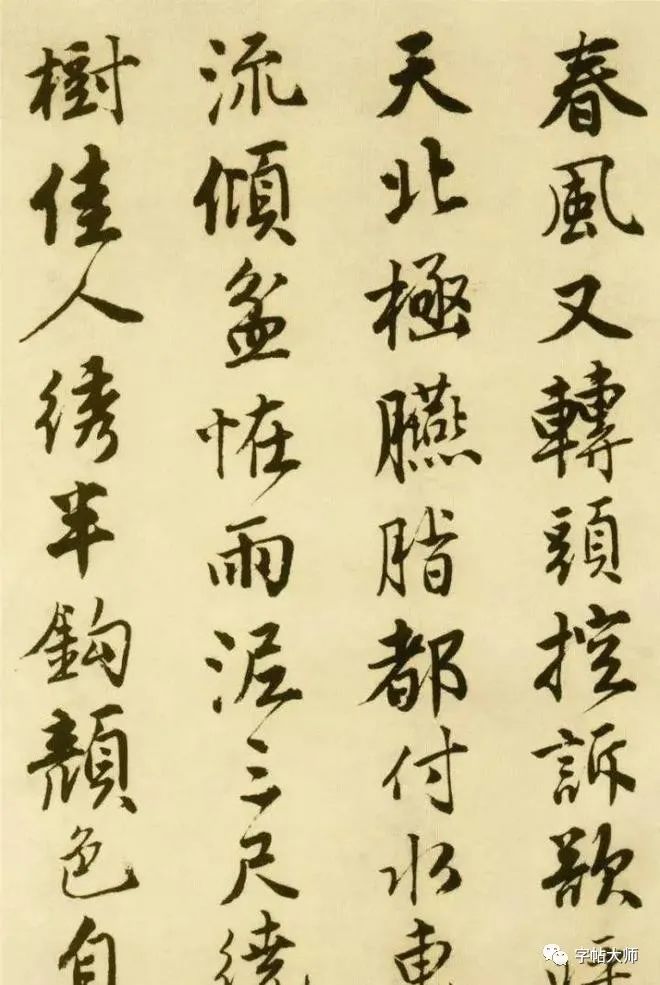 春風又轉頭控訴歟呼
天北極臙脂都付水東
流傾盆怪雨泥三尺繞
樹佳人綉半鈎顏色自
字帖大师